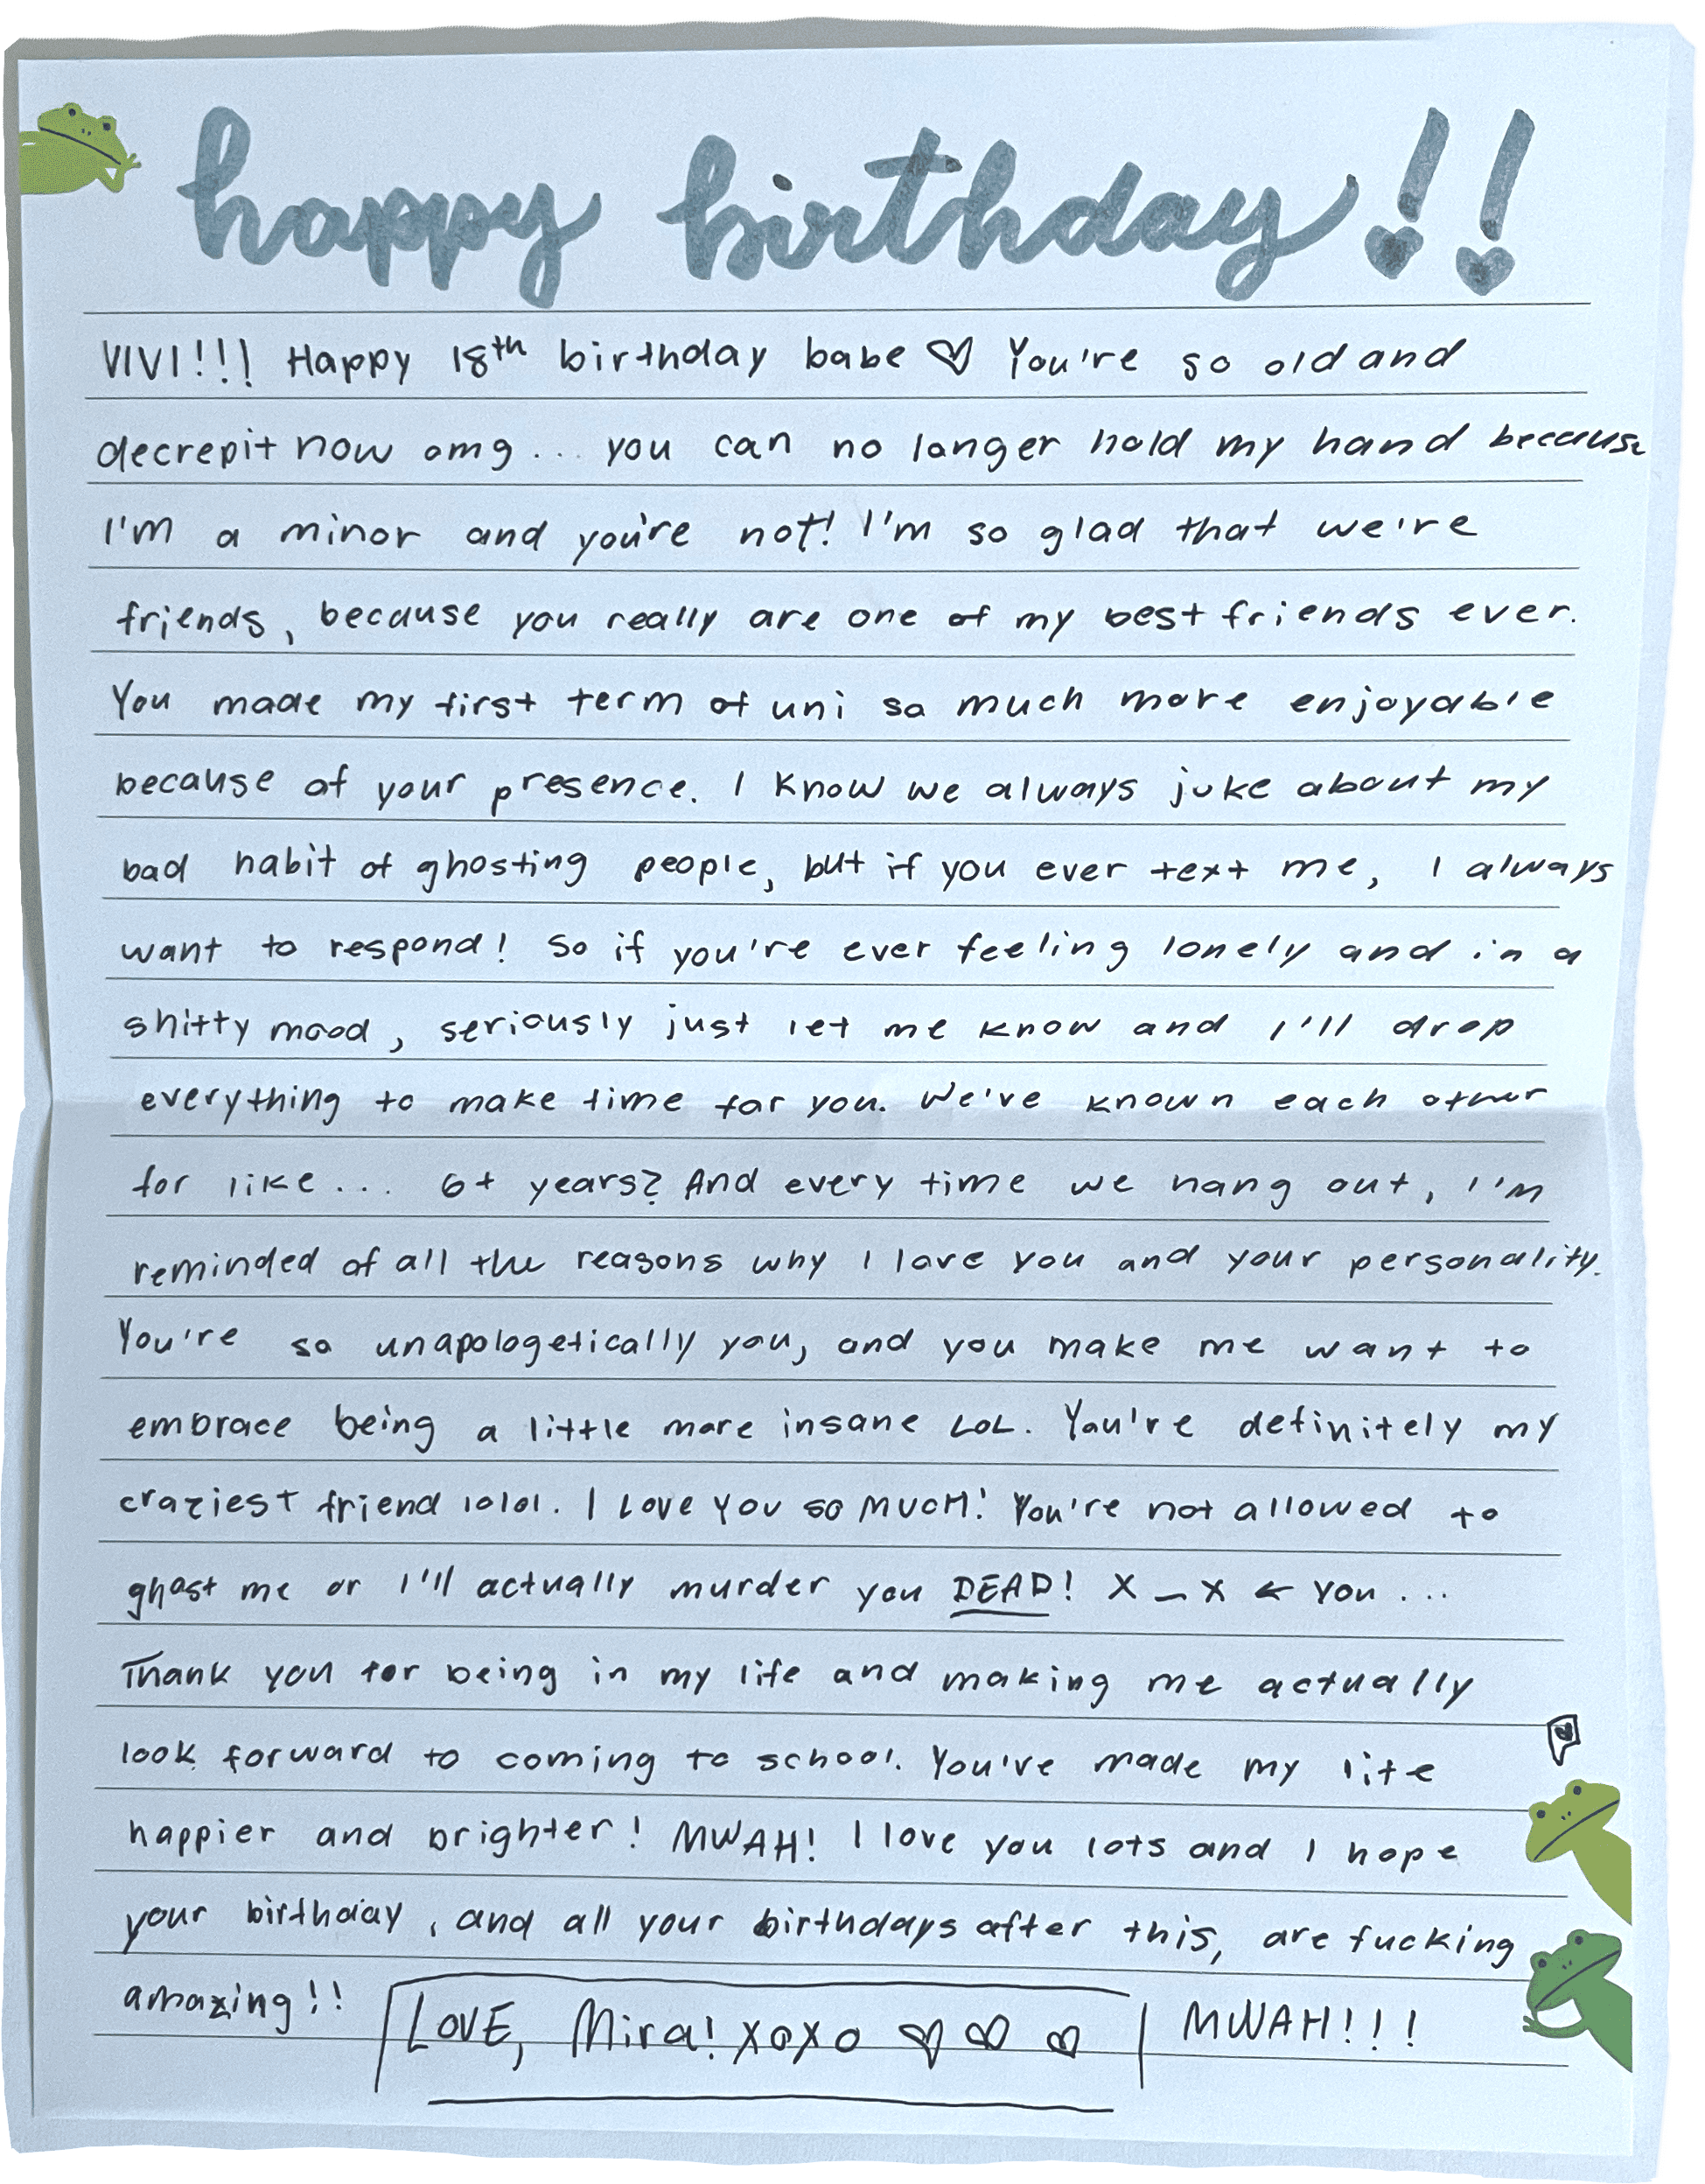 happy birthday!!
VIVI!!! Happy 18th birthday babe ♡ You're so old and
decrepit now omg... you can no longer hold my hand because
I'm a minor and you're not! I'm so glad that we're
friends, because you really are one of my best friends ever.
You made my first term of uni so much more enjoyable
because of your presence. I know we always joke about my
bad habit of ghosting people, but if you ever text me, I always
want to respond! So if you're ever feeling lonely and in a
shitty mood, seriously just let me know and I'll drop
everything to make time for you. We've known each other
for like... 6+ years? And every time we hang out, I'm
reminded of all the reasons why I love you and your personality.
You're so unapologetically you, and you make me want to
embrace being a little more insane LOL. You're definitely my
craziest friend lolol. I LOVE YOU SO MUCH! You're not allowed to
ghost me or I'll actually murder you DEAD! X_X ← you...
Thank you for being in my life and making me actually
look forward to coming to school. You've made my life
happier and brighter! MWAH! I love you lots and I hope
your birthday, and all your birthdays after this, are fucking
amazing!! LOVE, Mira! xoxo ♡ ♡ ♡ MWAH!!!